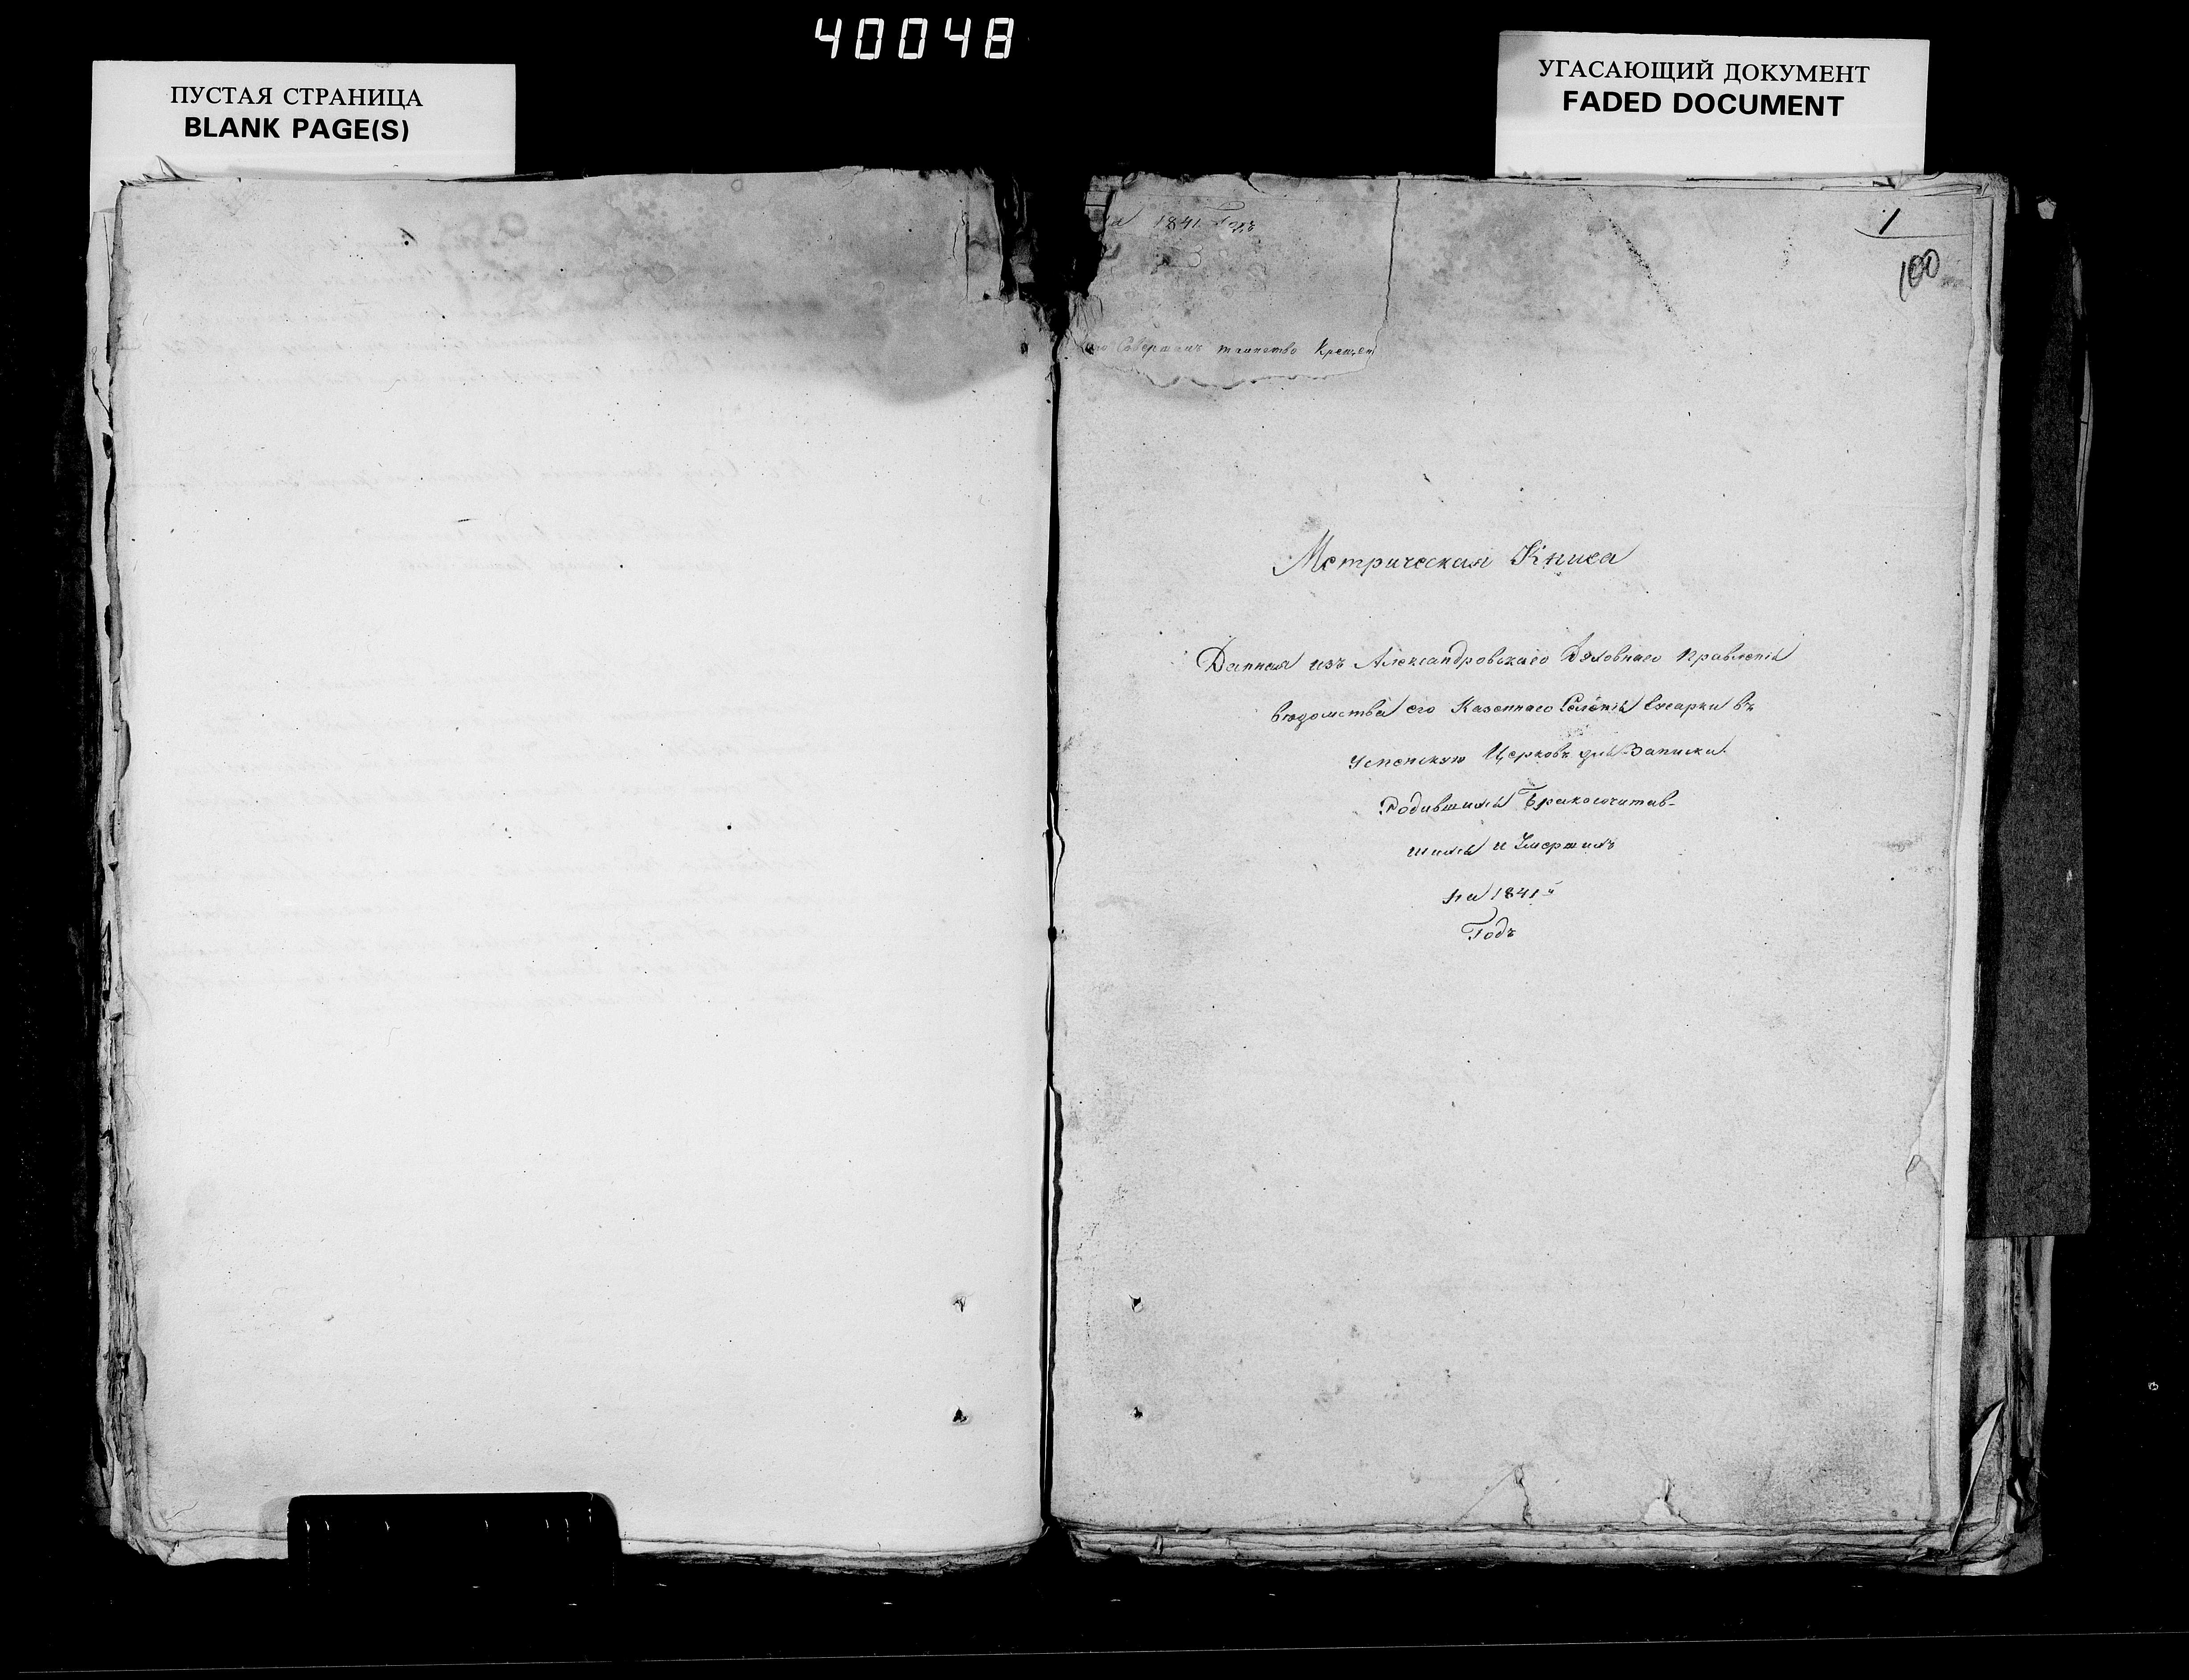 40048
ПУСТАЯ СТРАНИЦА
BLANK PAGE(S)
УГАСАЮЩИЙ ДОКУМЕНТ
FADED DOCUMENT
на 1841 Годъ
1
100
Совершалъ таинство Крещен
Метрическая Книга
Данная изъ Александровскаго Духовнаго Правленія
вѣдомства его Казеннаго Селенія въ
Успенскую Церковь для Записки
Родившихся Бракосочитав-
шихся и Умершихъ
на 1841й
Годъ